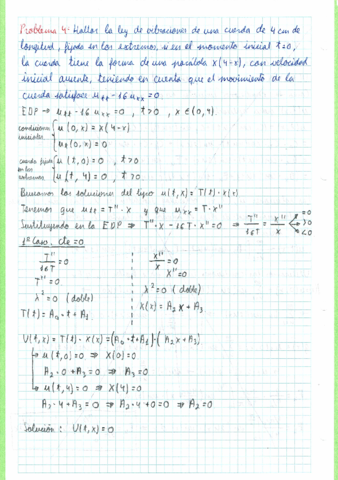 Problema 4: Hallar la ley de vibraciones de una cuerda de 4 cm de
longitud, fijada en los extremos, si en el momento inicial t=0,
la cuerda tiene la forma de una parábola x(4-x), con velocidad
inicial ausente, teniendo en cuenta que el movimiento de la
cuerda satisface u_tt - 16 u_xx = 0
EDP → u_tt - 16 u_xx = 0 , t>0 , x ∈ (0,4)
condiciones iniciales { u(0,x) = x(4-x)
u_t(0,x) = 0
cuerda fijada en los extremos { u(t,0) = 0 , t>0
u(t,4) = 0 , t>0
Buscamos las soluciones del tipo u(t,x) = T(t)·X(x)
Tenemos que u_tt = T''·X y que u_xx = T·X''
Sustituyendo en la EDP ⇒ T''·X - 16 T·X'' = 0 ⇒ T''/16T = X''/X =0 >0 <0
1º Caso. cte = 0
T''/16T = 0 X''/X = 0
T'' = 0 X'' = 0
λ² = 0 (doble) λ² = 0 (doble)
T(t) = A₀·t + A₁ X(x) = A₂x + A₃
U(t,x) = T(t)·X(x) = (A₀·t + A₁)·(A₂x + A₃)
→ u(t,0) = 0 ⇒ X(0) = 0
A₂·0 + A₃ = 0 ⇒ A₃ = 0
→ u(t,4) = 0 ⇒ X(4) = 0
A₂·4 + A₃ = 0 ⇒ A₂·4 + 0 = 0 ⇒ A₂ = 0
Solución: U(t,x) = 0